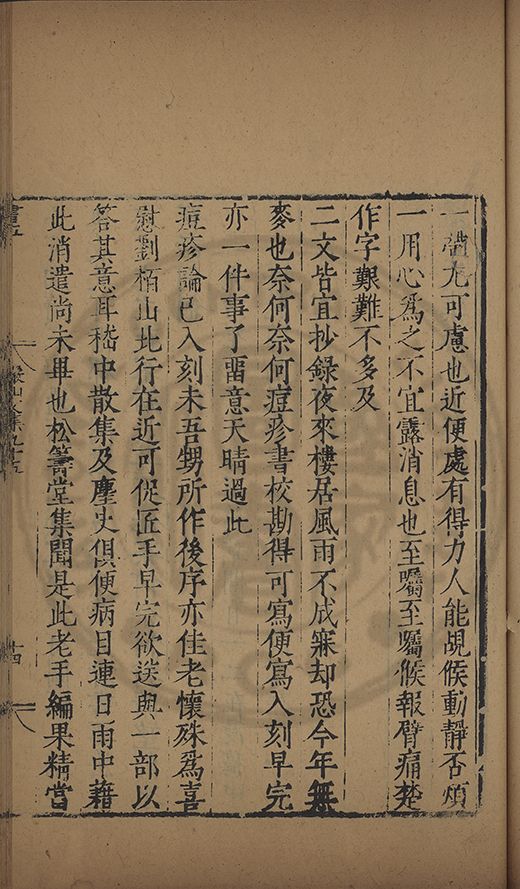 一帶尤可慮也近便處有得力人能覘候動靜否煩
一用心爲之不宜露消息也至囑至囑候報臂痛楚
作字艱難不多及
二文皆宜抄錄夜來樓居風雨不成寐却恐今年無
麥也奈何奈何痘疹書校勘得可寫便寫入刻早完
亦一件事了畱意天晴過此
痘疹論已入刻未吾甥所作後序亦佳老懷殊爲喜
慰劉栢山北行在近可促匠手早完欲送與一部以
答其意耳嵇中散集及塵史俱便病目連日雨中藉
此消遣尚未畢也松籌堂集聞是此老手編果精當
書五
儼山文集卷九十五
十四